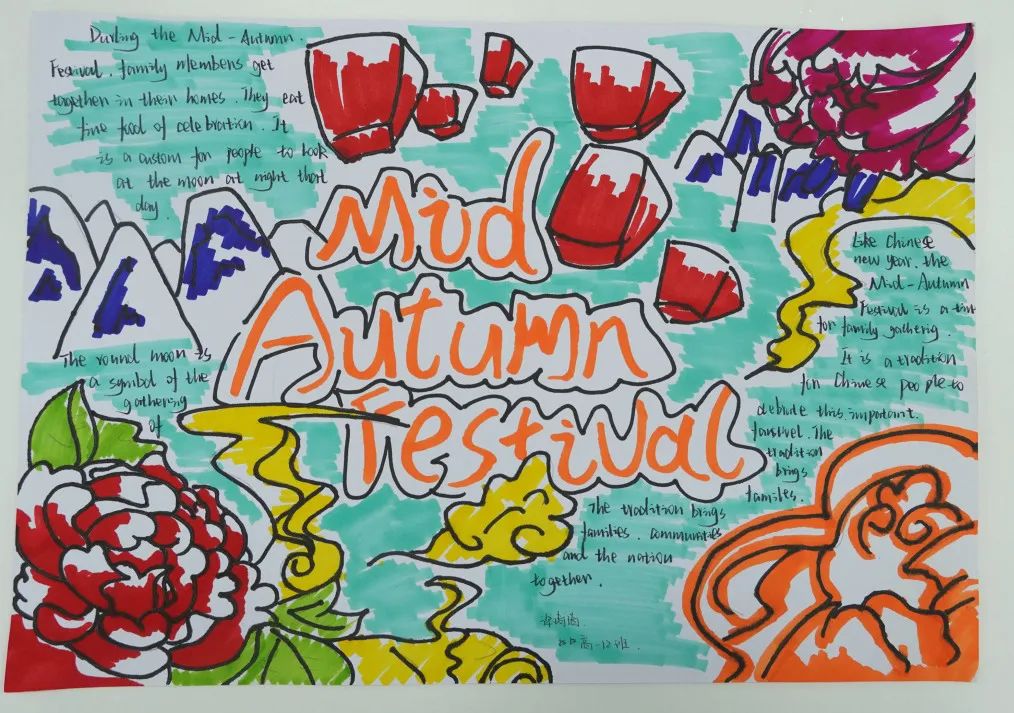 During the Mid-Autumn.
Festival. family members get
together in their homes. They eat
fine food of celebration. It
is a custom for people to look
at the moon at night that
day.
Mid
Autumn
Festival
The round moon is
a symbol of the
gathering
of
Like Chinese
new year. the
Mid-Autumn
Festival is a
for family gathering.
It is a tradition
for Chinese people to
this important.
The
tradition
brings
families.
The tradition brings
families. communities
and the nation
together.
高一12班.